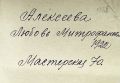 Алексеева
Любовь Митрофановна
Мастерских 7а